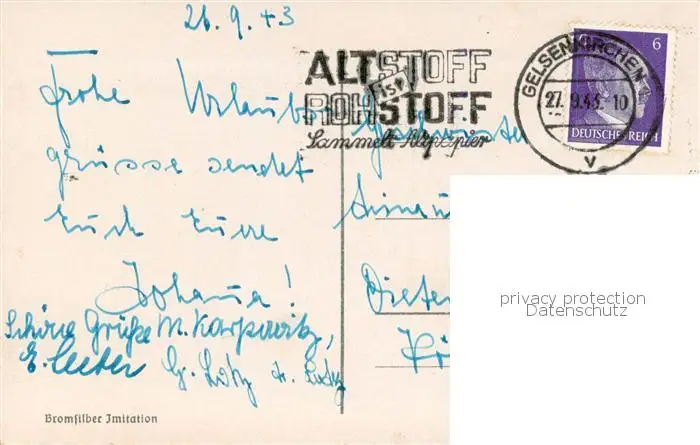 26.9.43
Frohe Urlaubs
grüsse sendet
Euch Eure
Johanna!
Schöne Grüße M. Karpowitz,
E.
G. Lutz
Bromsilber Imitation
ALTSTOFF
ist
ROHSTOFF
Sammelt Altpapier
GELSENKIRCHEN
27.9.43. 10
v
6
DEUTSCHES REICH
Geschwister
privacy protection
Datenschutz